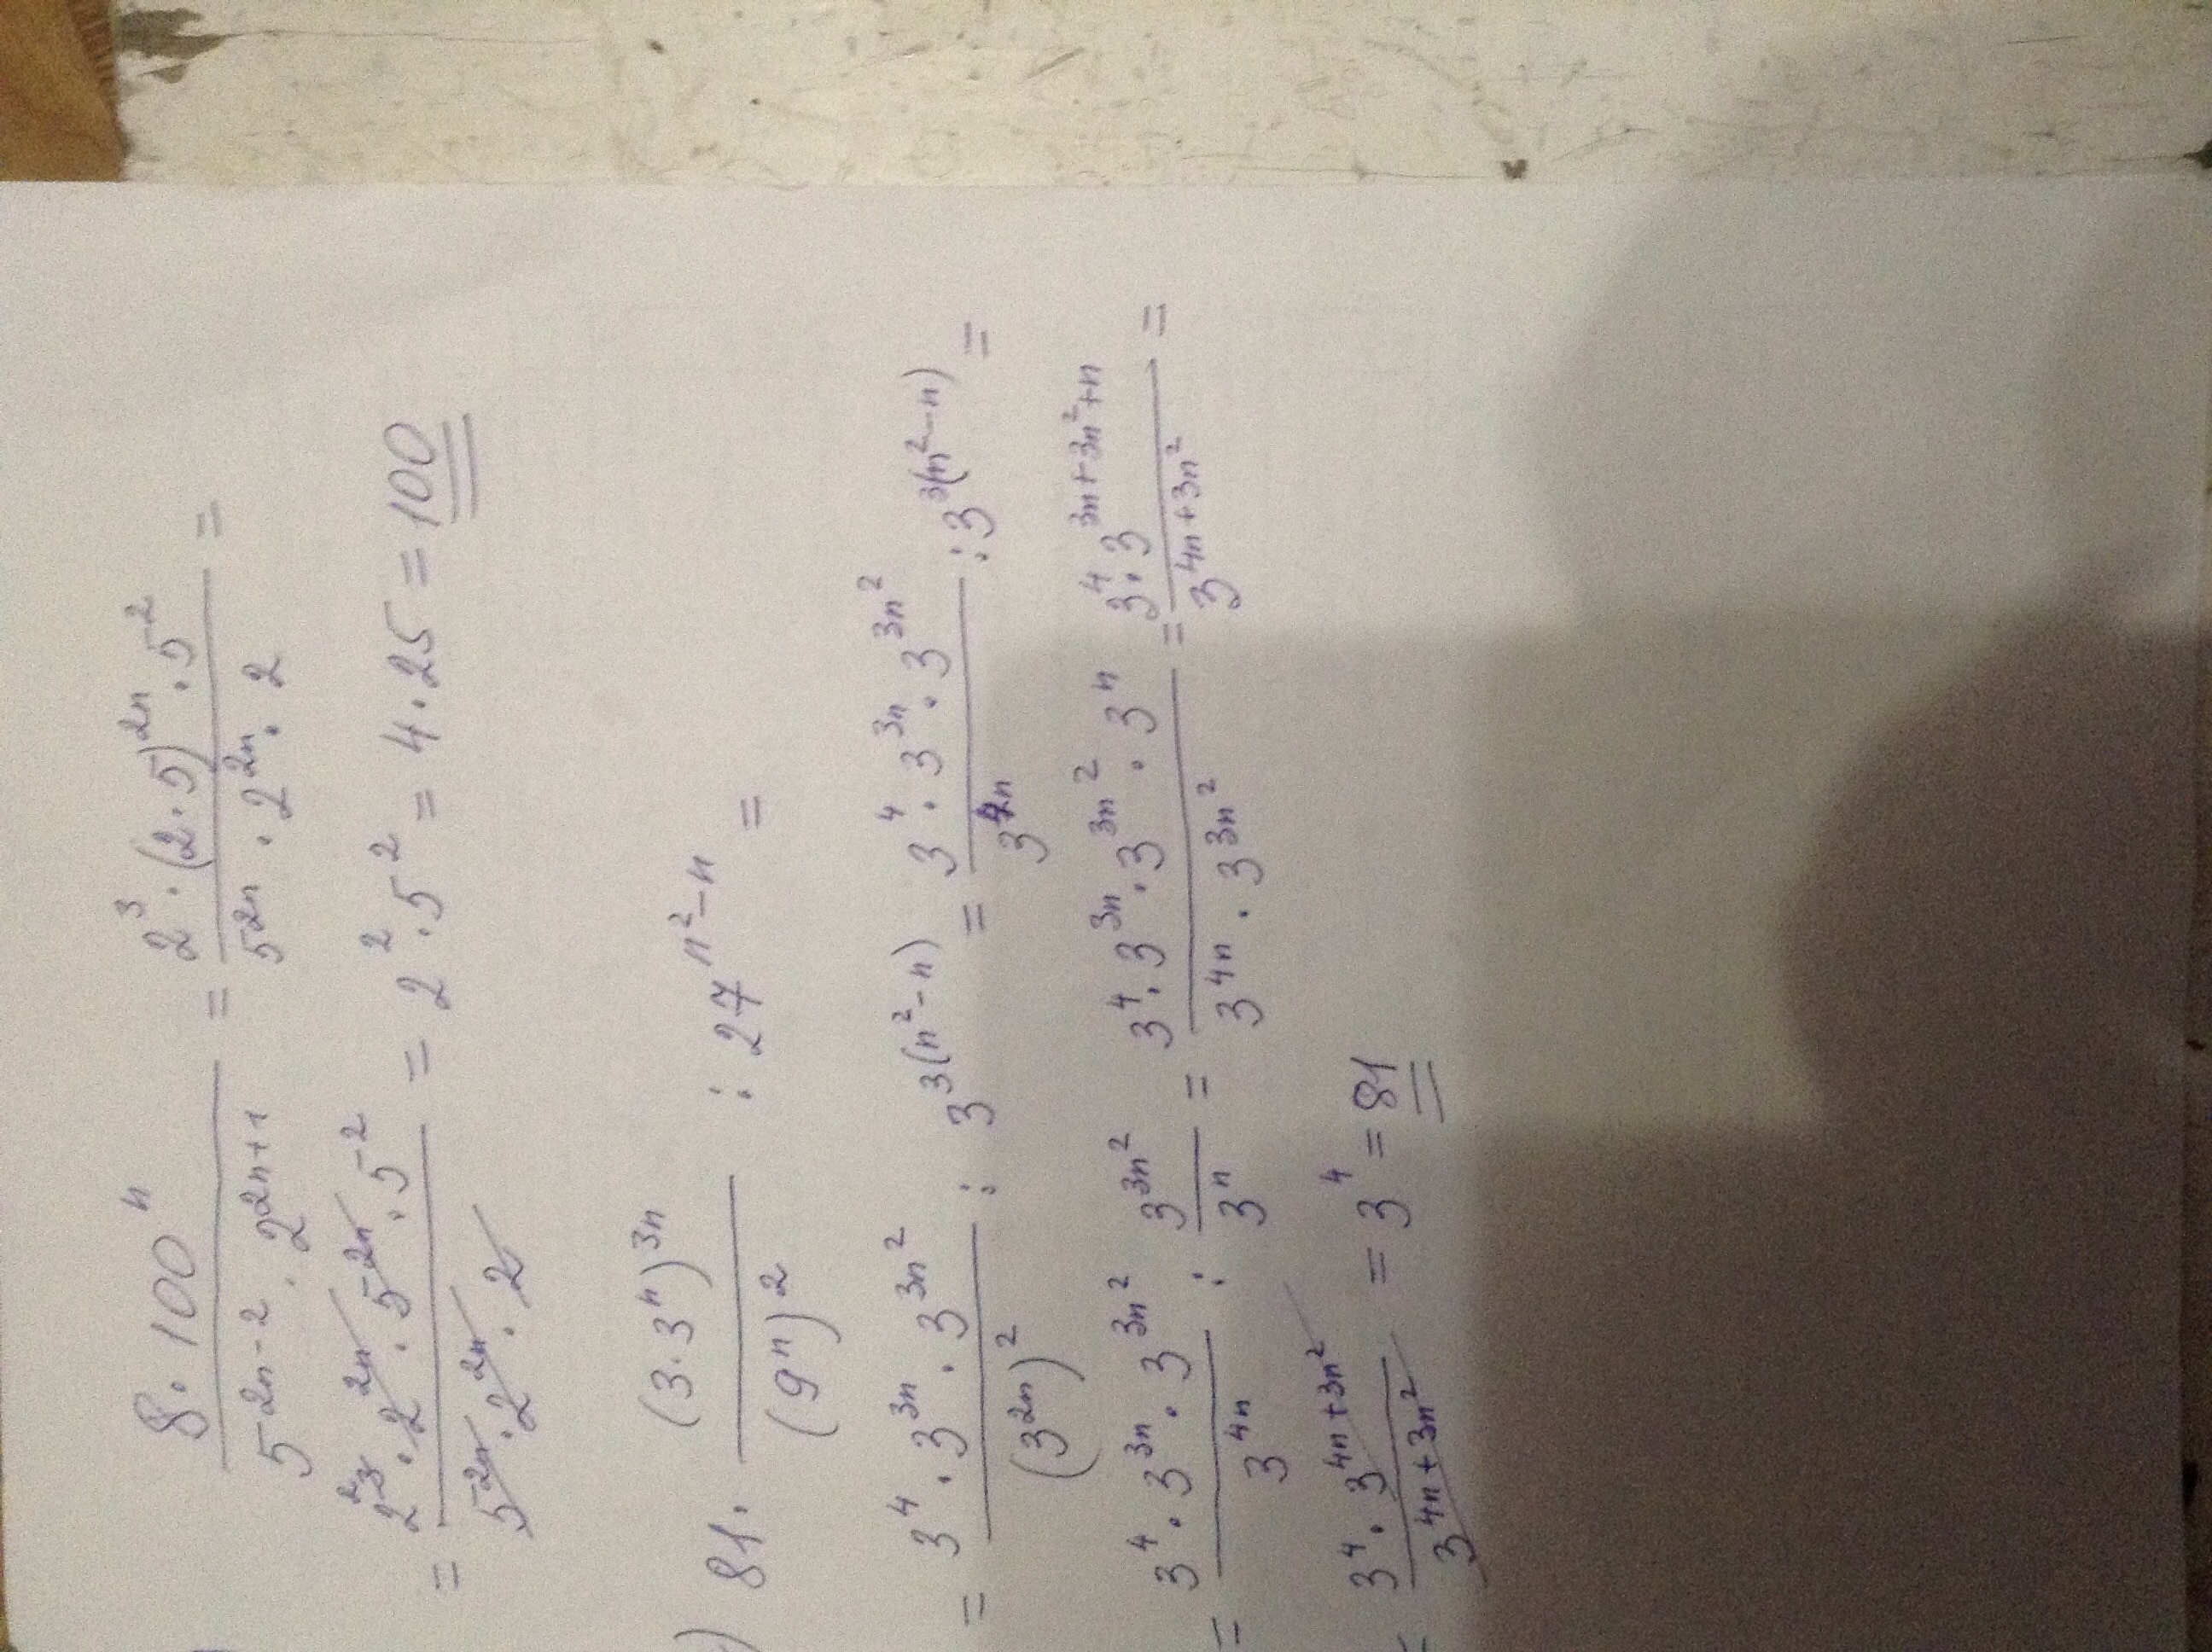 8·100ⁿ / 5²ⁿ⁻²·2²ⁿ⁺¹ = 2³·(2·5)²ⁿ·5² / 5²ⁿ·2²ⁿ·2 =
= 2³·2²ⁿ·5²ⁿ·5² / 5²ⁿ·2²ⁿ·2 = 2²·5² = 4·25 = 100
) 81· (3·3ⁿ)³ⁿ / (9ⁿ)² : 27^(n²-n) =
= 3⁴·3³ⁿ·3^(3n²) / (3²ⁿ)² : 3^(3(n²-n)) = 3⁴·3³ⁿ·3^(3n²) / 3⁴ⁿ : 3^(3(n²-n)) =
= 3⁴·3³ⁿ·3^(3n²) / 3⁴ⁿ : 3^(3n²) / 3ⁿ = 3⁴·3³ⁿ·3^(3n²)·3ⁿ / 3⁴ⁿ·3^(3n²) = 3⁴·3^(3n+3n²+n) / 3^(4n+3n²) =
= 3⁴·3^(4n+3n²) / 3^(4n+3n²) = 3⁴ = 81